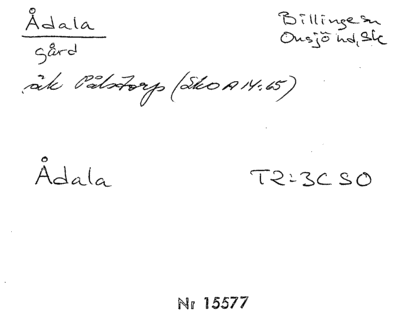 Ådala
Billinge sn
Onsjö hd, Sk
gård
äk Pålstorp (SkoA 14:65)
Ådala
T2:3C SO
Nr 15577